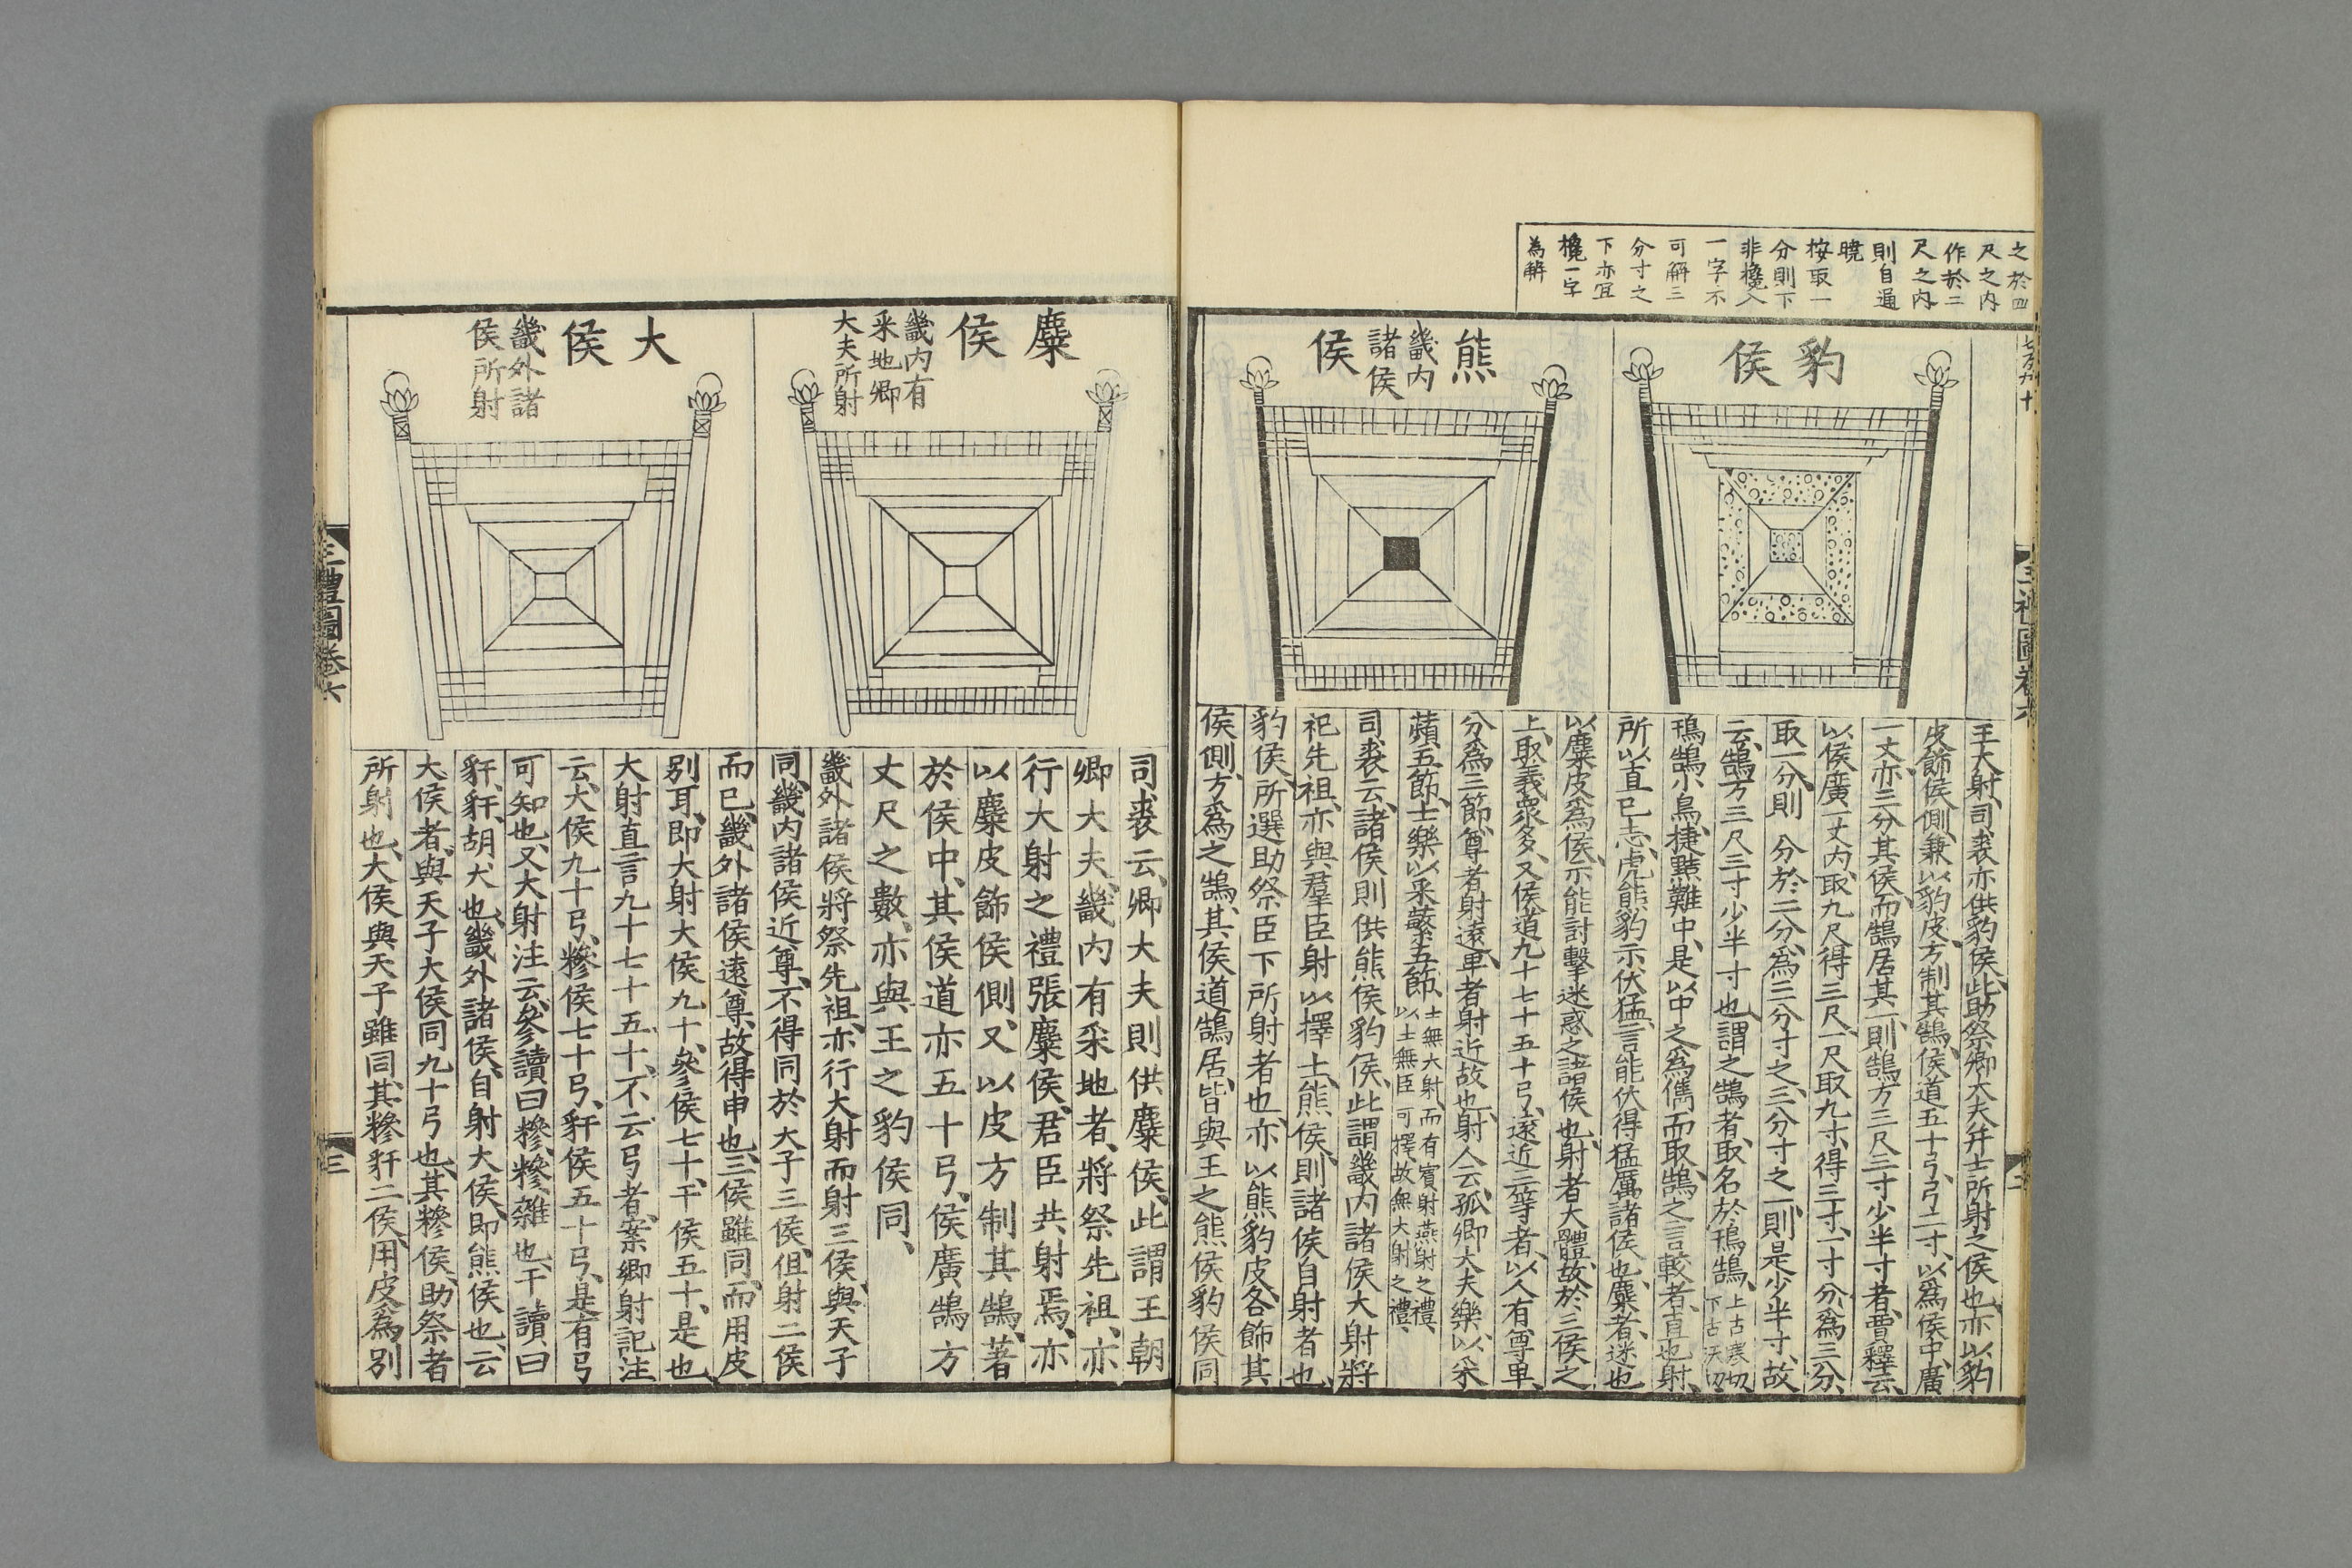 之於四
尺之内
作於二
尺之内
則自通
曉
按取一
分則下
非欃入
一字不
可解三
分寸之
下亦宜
欃一字
為解
豹侯
王大射司裘亦供豹侯此助祭卿大夫并士所射之侯也亦以豹
皮飾侯側兼以豹皮方制其鵠侯道五十弓弓二寸以爲侯中廣
一丈亦三分其侯而鵠居其一則鵠方三尺三寸少半寸者賈釋云
以侯廣一丈内取九尺得三尺一尺取九寸得三寸一寸分爲三分
取一分則 分於二分爲三分寸之三分寸之一則是少半寸故
云鵠方三尺三寸少半寸也謂之鵠者取名於鳱鵠上古寒切
下古沃切
鳱鵠小鳥捷黠難中是以中之爲儁而取鵠之言較者直也射
所以直已志虎熊豹示伏猛言能伏得猛厲諸侯也麋者迷也
以麋皮爲侯示能討擊迷惑之諸侯也射者大體故於三侯之
上取義衆多又侯道九十七十五十弓遠近三等者以人有尊卑
分爲三節尊者射遠卑者射近故也射人云孤卿大夫樂以采
蘋五節士樂以采蘩五節士無大射而有賓射燕射之禮
以士無臣可擇故無大射之禮
熊侯
畿内
諸侯
司裘云諸侯則供熊侯豹侯此謂畿内諸侯大射將
祀先祖亦與羣臣射以擇士熊侯則諸侯自射者也
豹侯所選助祭臣下所射者也亦以熊豹皮各飾其
侯側方爲之鵠其侯道鵠居皆與王之熊侯豹侯同
麋侯
畿内有
采地卿
大夫所射
司裘云卿大夫則供麋侯此謂王朝
卿大夫畿内有采地者將祭先祖亦
行大射之禮張麋侯君臣共射焉亦
以麋皮飾侯側又以皮方制其鵠著
於侯中其侯道亦五十弓侯廣鵠方
丈尺之數亦與王之豹侯同
大侯
畿外諸
侯所射
畿外諸侯將祭先祖亦行大射而射三侯與天子
同畿内諸侯近尊不得同於大子三侯但射二侯
而已畿外諸侯遠尊故得申也三侯雖同而用皮
別耳即大射大侯九十參侯七十干侯五十是也
大射直言九十七十五十不云弓者案鄉射記注
云大侯九十弓糝侯七十弓豻侯五十弓是有弓
可知也又大射注云參讀曰糝糝雜也干讀曰
豻豻胡犬也畿外諸侯自射大侯即熊侯也云
大侯者與天子大侯同九十弓也其糝侯助祭者
所射也大侯與天子雖同其糝豻二侯用皮爲別
三禮圖卷六
三